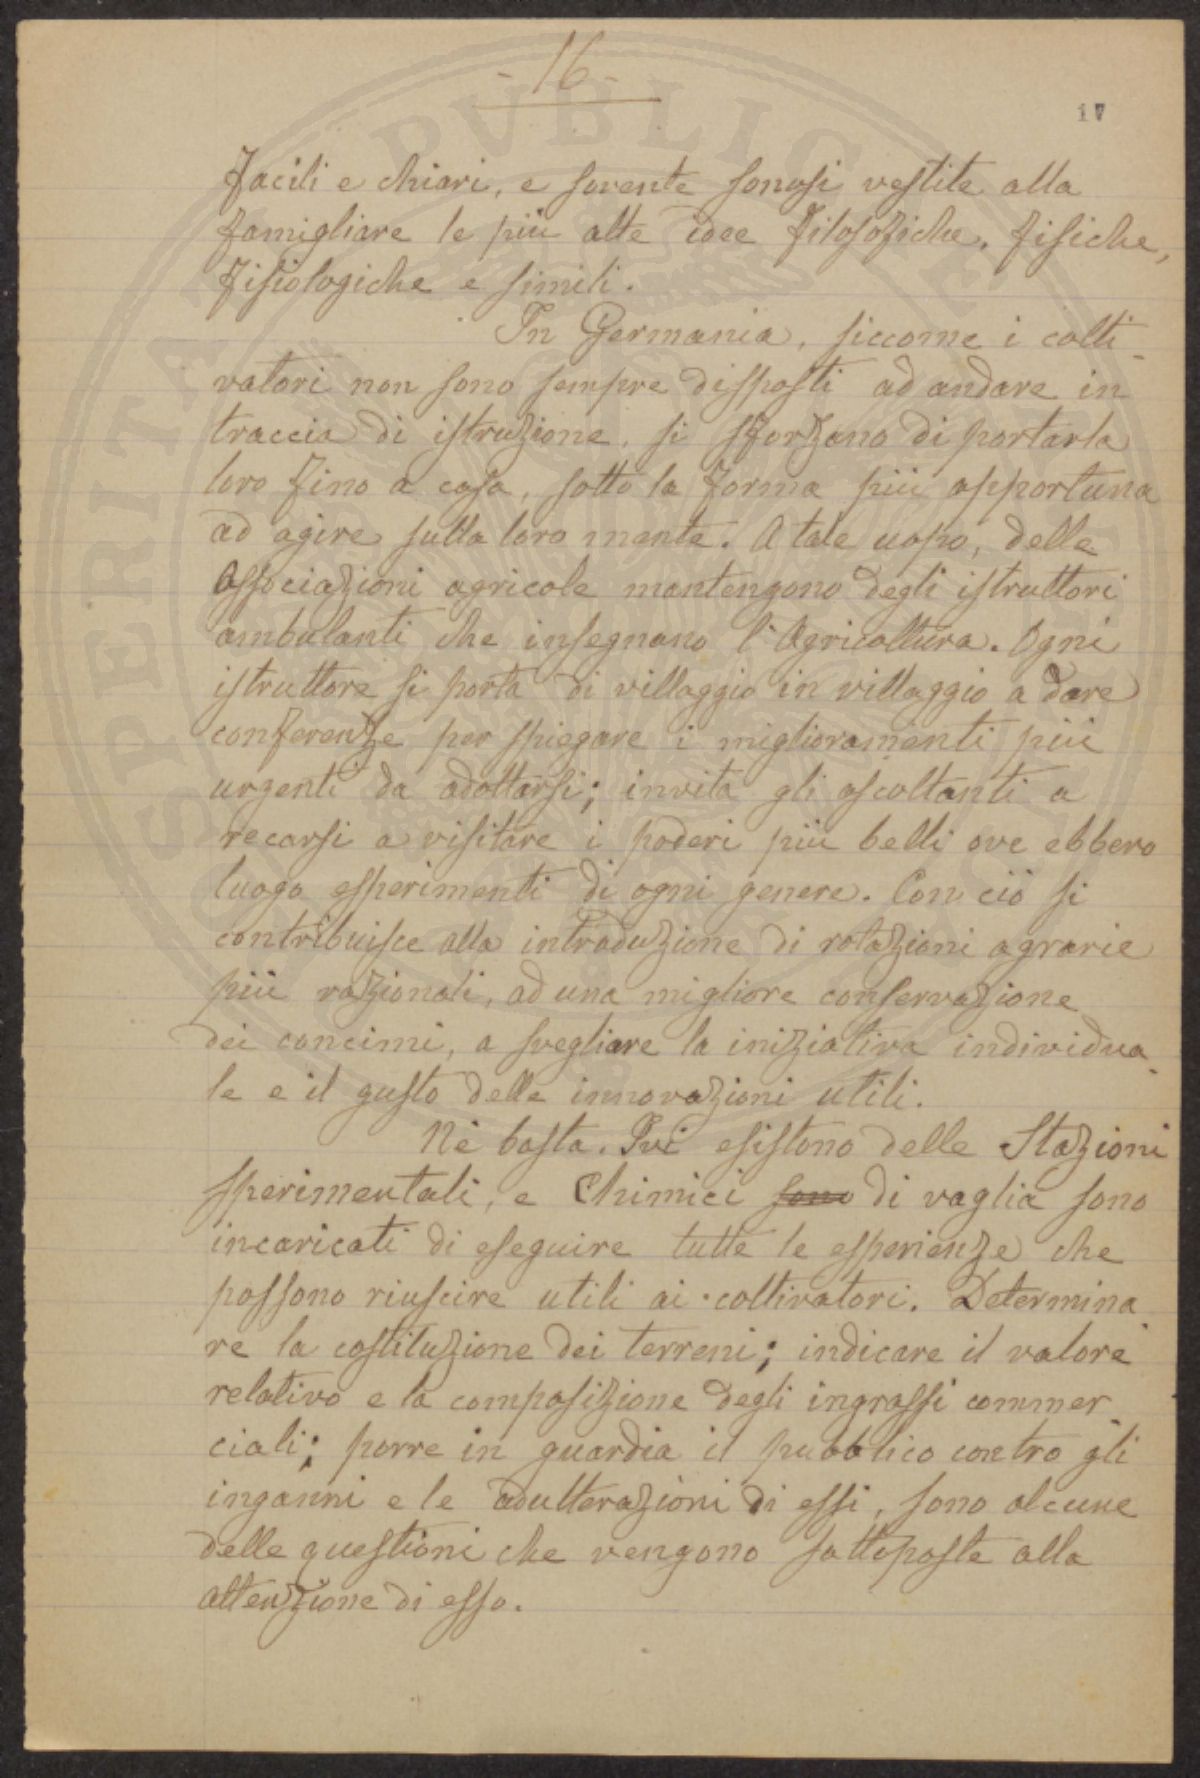 - 16 -
17
facili e chiari, e sovente sonosi vestite alla
famigliare le più alte idee filosofiche, fisiche,
fisiologiche e simili.
In Germania, siccome i colti-
vatori non sono sempre disposti ad andare in
traccia di istruzione, si sforzano di portarla
loro fino a casa, sotto la forma più opportuna
ad agire sulla loro mente. A tale uopo, delle
Associazioni agricole mantengono degli istruttori
ambulanti che insegnano l'Agricoltura. Ogni
istruttore si porta di villaggio in villaggio a dare
conferenze per spiegare i miglioramenti più
urgenti da adottarsi; invita gli ascoltanti a
recarsi a visitare i poderi più belli ove ebbero
luogo esperimenti di ogni genere. Con ciò si
contribuisce alla introduzione di rotazioni agrarie
più razionali, ad una migliore conservazione
dei concimi, a svegliare la iniziativa individua-
le e il gusto delle innovazioni utili.
Nè basta. Ivi esistono delle Stazioni
sperimentali, e Chimici sono di vaglia sono
incaricati di eseguire tutte le esperienze che
possono riuscire utili ai coltivatori. Determina
re la costituzione dei terreni; indicare il valore
relativo e la composizione degli ingrassi commer
ciali; porre in guardia il pubblico contro gli
inganni e le adulterazioni di essi, sono alcune
delle questioni che vengono sottoposte alla
attenzione di esso.